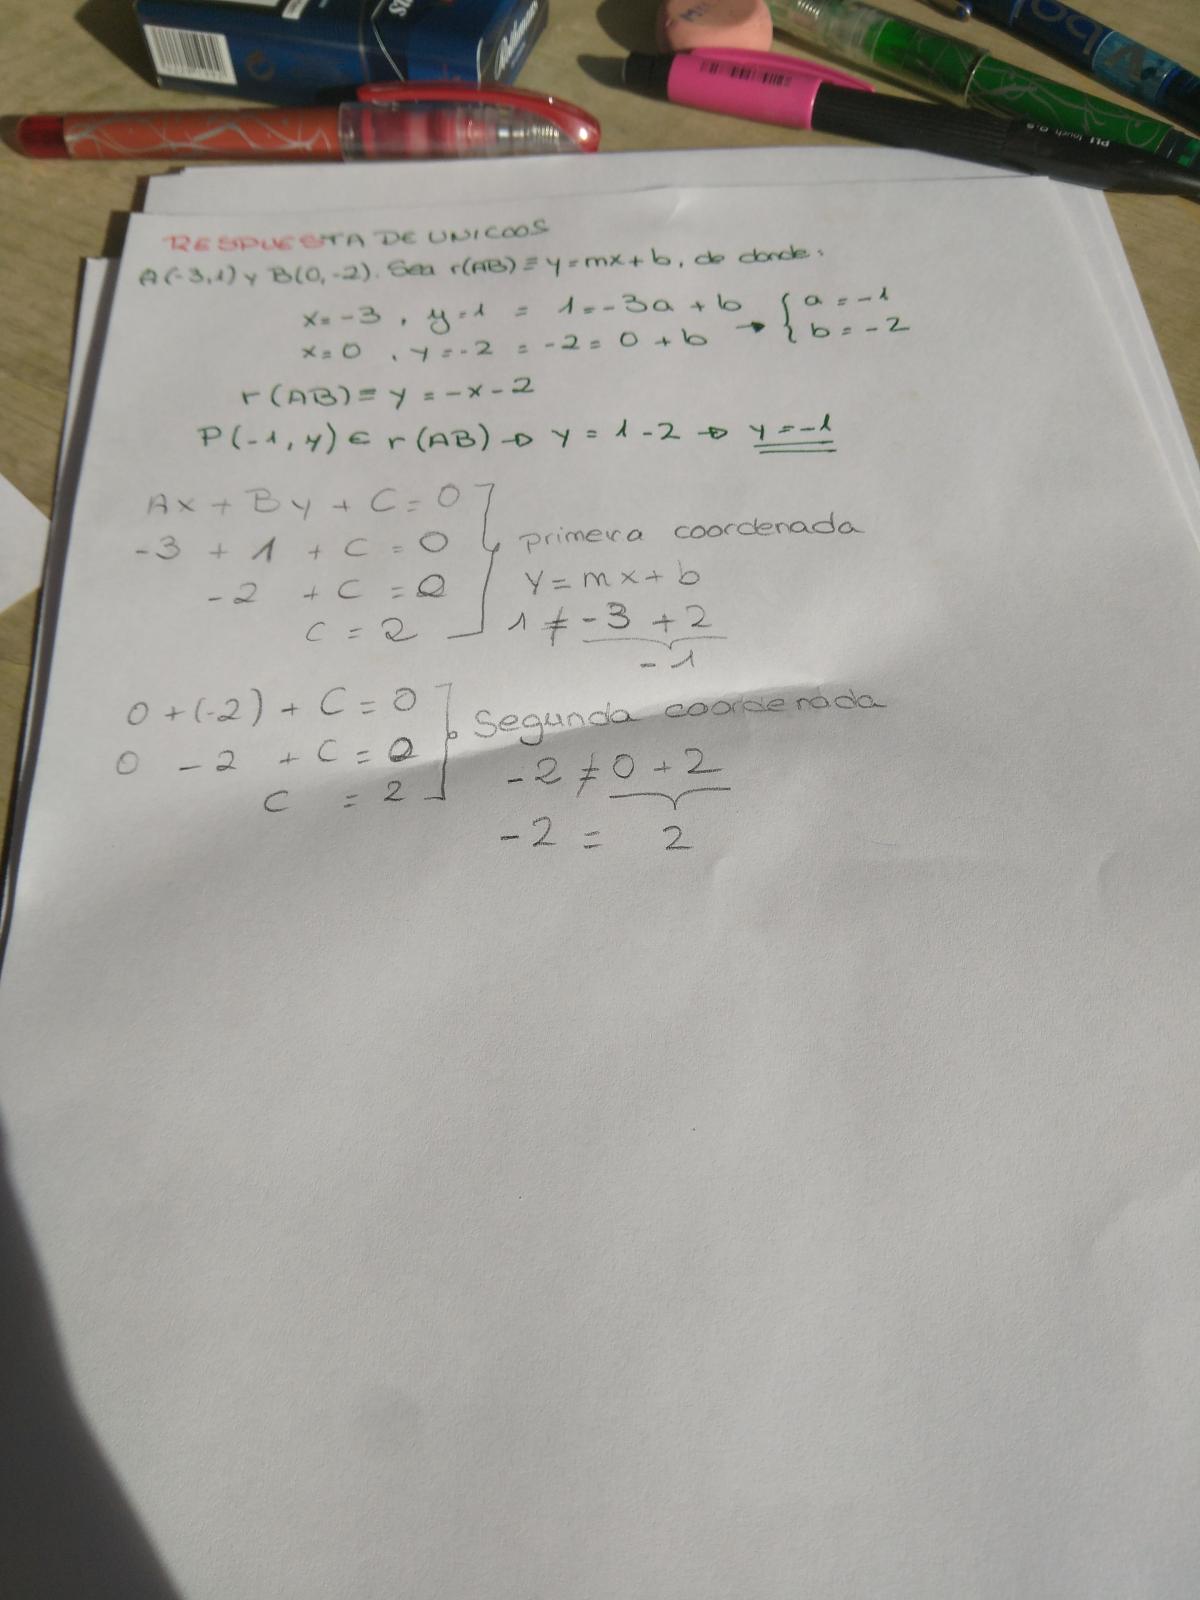 RESPUESTA DE UNICOOS
A(-3,1) y B(0,-2). Sea r(AB) ≡ y = mx + b, de donde:
x = -3, y = 1 = 1 = -3a + b { a = -1
x = 0, y = -2 = -2 = 0 + b → { b = -2
r(AB) ≡ y = -x - 2
P(-1, y) ∈ r(AB) → y = 1 - 2 → y = -1
Ax + By + C = 0
-3 + 1 + C = 0 primera coordenada
-2 + C = 0 y = mx + b
C = 2 1 ≠ -3 + 2
-1
0 + (-2) + C = 0 Segunda coordenada
0 - 2 + C = 0 -2 ≠ 0 + 2
C = 2
-2 = 2
PILOT
MILAN